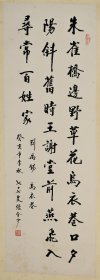 朱雀橋邊野草花烏衣巷口夕
陽斜舊時王謝堂前燕飛入
尋常百姓家
劉禹錫 烏衣巷